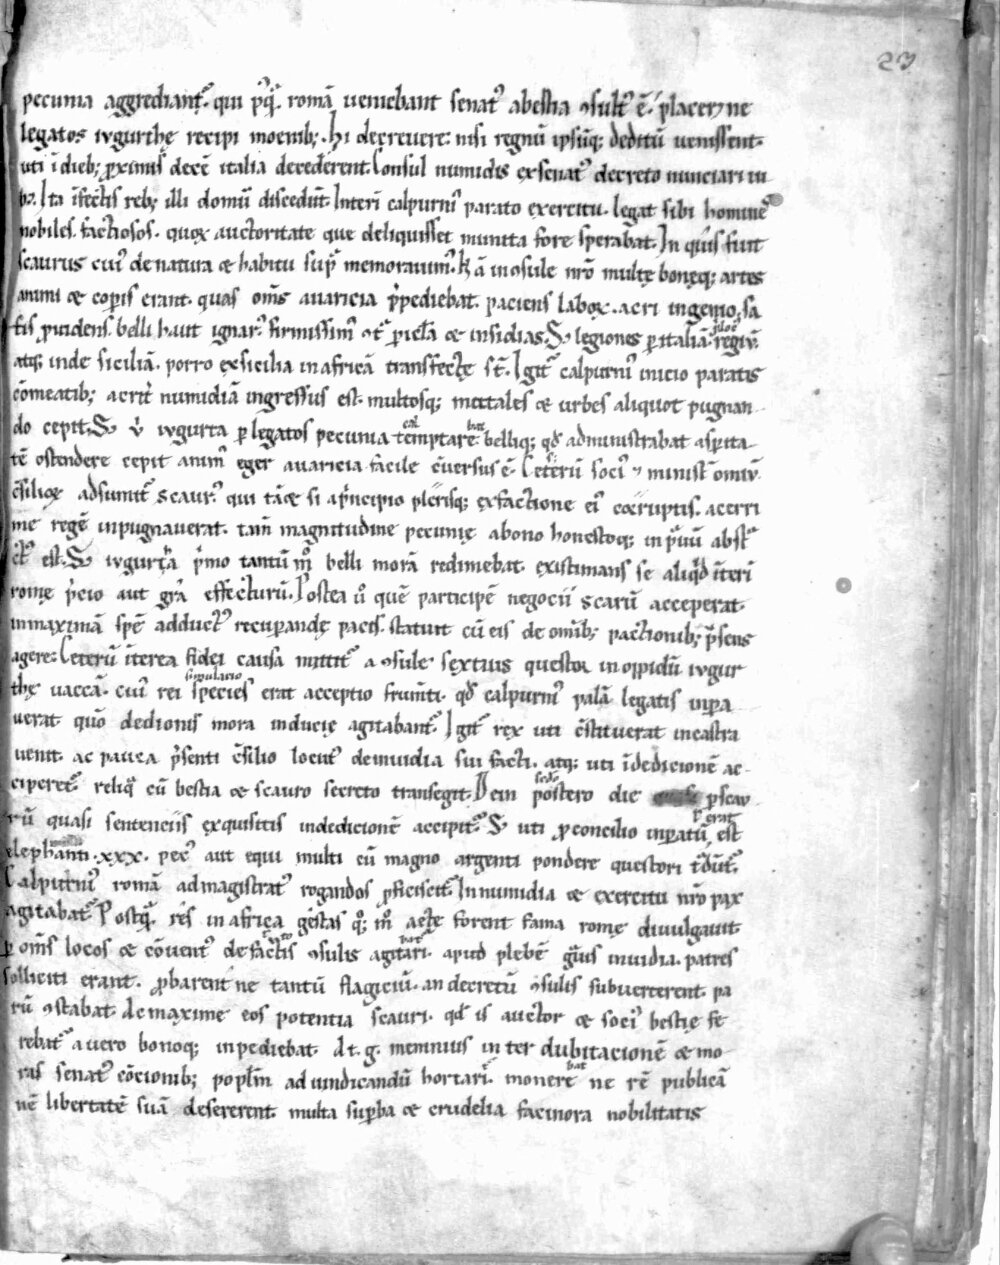 23
pecunia aggrediant᷑. qui pꝰq̄. romā veniebant senatꝰ abestia ꝯsultꝰ ē. placer& ne
legatos iugurthe recipi moenib; hi decreuere. nisi regnū ipsūq; deditū uenissent.
uti ī dieb; ꝓximis decē italia decederent. Consul numidis exsenatꝰ decreto nunciari iu
b&. Ita īfectis reb; illi domū discedūt. Interi calpurniꝰ parato exercitu. legat sibi homineſ
nobiles. factiosos. quoꝝ auctoritate que deliquisset munita fore sperabat. In quis fuit
scaurus cuiꝰ denatura & habitu sup̄ memorauimꝰ. Nā inꝯsule nr̄o multę bonęq; artes
animi & corporis erant. quas om̄s auaricia p̄pediebat. paciens laboꝝ. acri ingenio. sa
tis ꝓuidens. belli haut ignarꝰ firmissimꝰ ꝯtᷓ pericla & insidias. S; legiones ꝑ italiā. regiū.
atq; inde siciliā. porro exsicilia inafricā transfectę st̄. Igit᷑ calpurniꝰ inicio paratis
cōmeatib; acrit̓ numidiā ingressus est. multosq; mortales & urbes aliquot pugnan
do cepit. S; ū iugurta ꝑ legatos pecunia temptare belliq; qd̄ administrabat asperita
tē ostendere cepit animꝰ eger auaricia facile cōuersus ē. Ceterū sociꝰ & minist̄ omniū
cōsilioꝝ adsumit᷑ scaurꝰ qui tām& si ap̄ncipio plerisq; exfactione eiꝰ corruptis. acerri
me regē inpugnauerat. tam̄ magnitudine pecunię abono honestoq; in prauū abstᷓ
ctꝰ est. S; iugurta p̄mo tantū m̊ belli morā redimebat. existimans se aliqd̄ īteri
romę p̄cio aut gr̄a effecturū. Postea ů quē participē negocii scarū acceperat.
inmaximā spē adductꝰ recuperandę pacis. statuit cū eis de omīb; pactionib; p̄sens
agere. Ceterū īterea fidei causa mittit᷑ a ꝯsule sextius questor in oppidū iugur
thę uaccā. cuiꝰ rei species erat acceptio frumti. qd̄ calpurniꝰ palā legatis inpera
uerat. quō dedionis mora inducię agitabant᷑. Igit᷑ rex uti cōstituerat incastra
uenit. ac pauca p̄senti cōsilio locutꝰ deinuidia sui facti. atq; uti īdedicionē ac
ciperet᷑. reliqᷓ cū bestia & scauro secreto transegit. Dein postero die ꝑscau
rū quasi sentenciis exquisitis indedicionē accipit᷑. S; uti ꝓconcilio inperatū est
elephanti. xxx. pecꝰ aut equi multi cū magno argenti pondere questori tᷓdūt᷑.
Calpurniꝰ romā admagistratꝰ rogandos ꝓficiscit᷑. In numidia & exercitu nr̄o pax
agitabat᷑. Postq̄. res in africa gestas q̊; m̊ actę forent fama romę diuulgauit
ꝑ om̄s locos & cōuentꝰ defactis ꝯsulis agitari. apud plebē grauis inuidia. patres
solliciti erant. ꝓbarent ne tantū flagiciū. an decretū ꝯsulis subuerterent. pa
rū ꝯstabat. Ac maxime eos potentia scauri. qd̄ is auctor & sociꝰ bestię fe
rebat᷑ auero bonoq; inpediebat. At. g. memnius inter dubitacionē & mo
ras senatꝰ cōcionib; poplm̄ aduindicandū hortari. monere ne rē publicā
nē libertatē suā desererent. multa superba & crudelia facinora nobilitatis